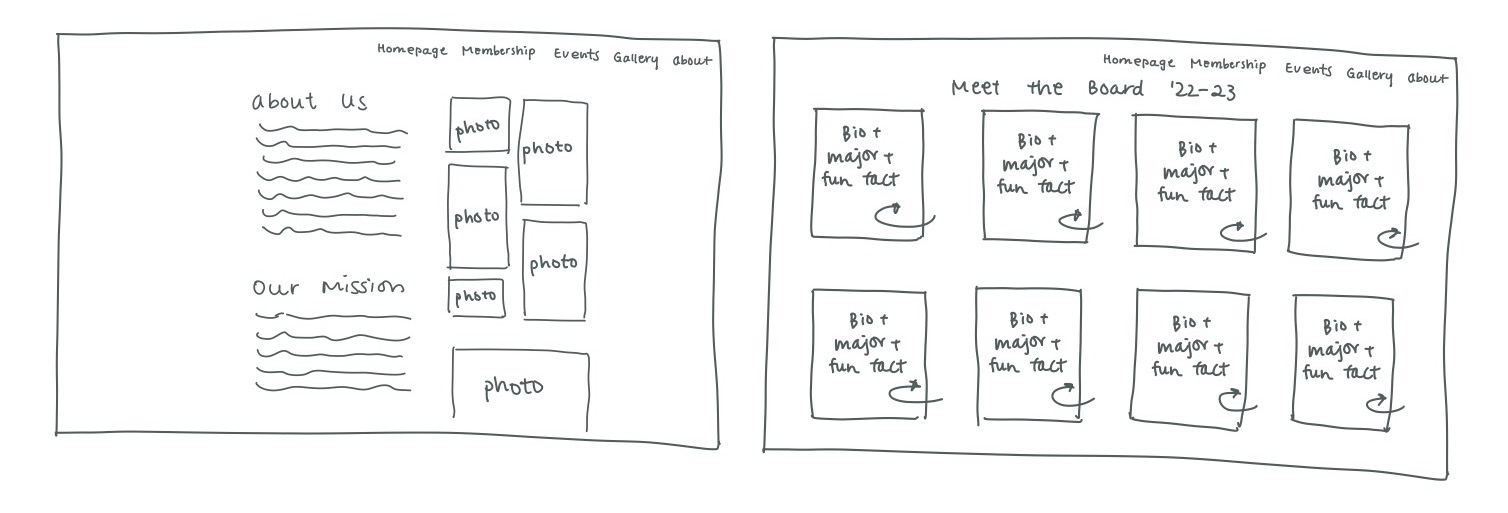 Homepage Membership Events Gallery about
about us
photo
photo
photo
photo
Our Mission
photo
photo
Homepage Membership Events Gallery about
Meet the Board '22-23
Bio +
major +
fun fact
Bio +
major +
fun fact
Bio +
major +
fun fact
Bio +
major +
fun fact
Bio +
major +
fun fact
Bio +
major +
fun fact
Bio +
major +
fun fact
Bio +
major +
fun fact